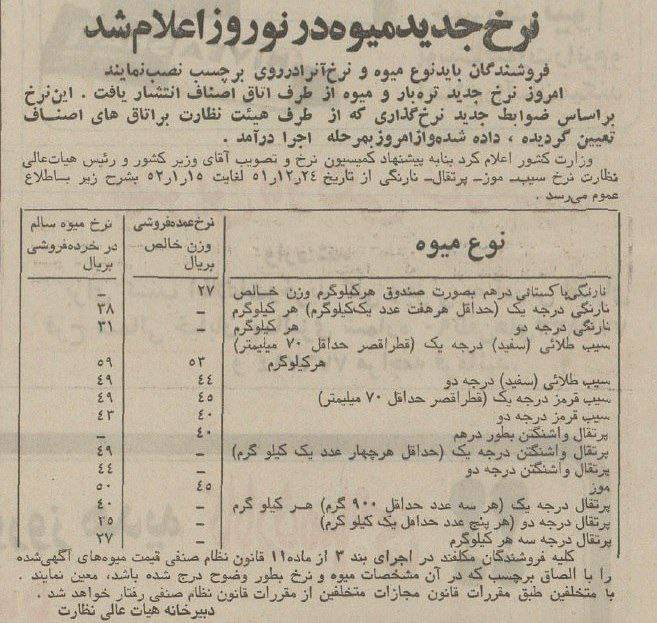 نرخ جدید میوه در نوروز اعلام شد
فروشندگان باید نوع میوه و نرخ آنرا در روی برچسب نصب نمایند
امروز نرخ جدید تره‌بار و میوه از طرف اتاق اصناف انتشار یافت . این نرخ
براساس ضوابط جدید نرخ‌گذاری که از طرف هیئت نظارت بر اتاق های اصناف
تعیین گردیده ، داده شده و از امروز بمرحله اجرا درآمد .
وزارت کشور اعلام کرد بنابه پیشنهاد کمیسیون نرخ و تصویب آقای وزیر کشور و رئیس هیات عالی
نظارت نرخ سیب ـ موز ـ پرتقال ـ نارنگی از تاریخ ۵۱ر۱۲ر۲۴ لغایت ۵۲ر۱ر۱۵ بشرح زیر باطلاع
عموم می‌رسد .
نوع میوه نرخ عمده‌فروشی وزن خالص بریال نرخ میوه سالم در خرده‌فروشی بریال
نارنگی پاکستانی درهم بصورت صندوق هر کیلوگرم وزن خالص ۲۷ ـ
نارنگی درجه یک (حداقل هر هفت عدد یک کیلوگرم) هر کیلوگرم ـ ۳۸
نارنگی درجه دو هر کیلوگرم ـ ۳۱
سیب طلائی (سفید) درجه یک (قطر اقصر حداقل ۷۰ میلیمتر)
هر کیلوگرم ۵۳ ۵۹
سیب طلائی (سفید) درجه دو ۴۴ ۴۹
سیب قرمز درجه یک (قطر اقصر حداقل ۷۰ میلیمتر) ۴۵ ۴۹
سیب قرمز درجه دو ۴۰ ۴۳
پرتقال واشنگتن بطور درهم ۴۰ ـ
پرتقال واشنگتن درجه یک (حداقل هر چهار عدد یک کیلو گرم) ـ ۴۹
پرتقال واشنگتن درجه دو ـ ۴۴
موز ۴۵ ۵۰
پرتقال درجه یک (هر سه عدد حداقل ۹۰۰ گرم) هر کیلو گرم ـ ۴۰
پرتقال درجه دو (هر پنج عدد حداقل یک کیلو گرم) ـ ۳۵
پرتقال درجه سه هر کیلوگرم ـ ۲۷
کلیه فروشندگان مکلفند در اجرای بند ۳ از ماده ۱۱ قانون نظام صنفی قیمت میوه‌های آگهی‌شده
را با الصاق برچسب که در آن مشخصات میوه و نرخ بطور وضوح درج شده باشد، معین نمایند .
با متخلفین طبق مقررات قانون مجازات متخلفین از مقررات قانون نظام صنفی رفتار خواهد شد .
دبیرخانه هیات عالی نظارت